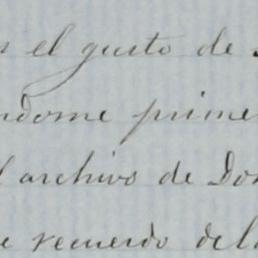 el gusto de
ndome prime
l archivo de Don
e recuerdo del